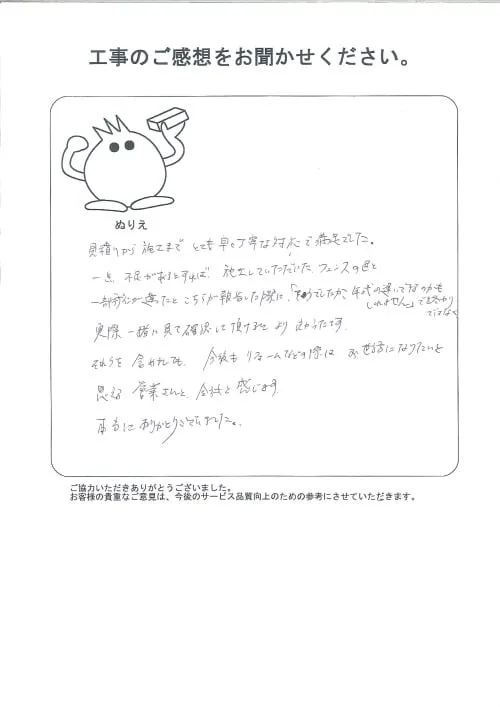 工事のご感想をお聞かせください。
ぬりえ
見積りから施工まで とても早く丁寧な対応で満足でした。
一点 不足があるとすれば、施工していただいた フェンスの色と
一部部分が違ったとこちらが報告した際に、「そうでしたか、年代の違いでなのかも
しれません」で終わり
ではなく
実際一緒に見て確認して頂けると より よかったです。
それらを含めれても、今後も リフォームなどの際は お世話になりたいと
思う 営業さんと、会社と感じます。
本当にありがとうございました。
ご協力いただきありがとうございました。
お客様の貴重なご意見は、今後のサービス品質向上のための参考にさせていただきます。